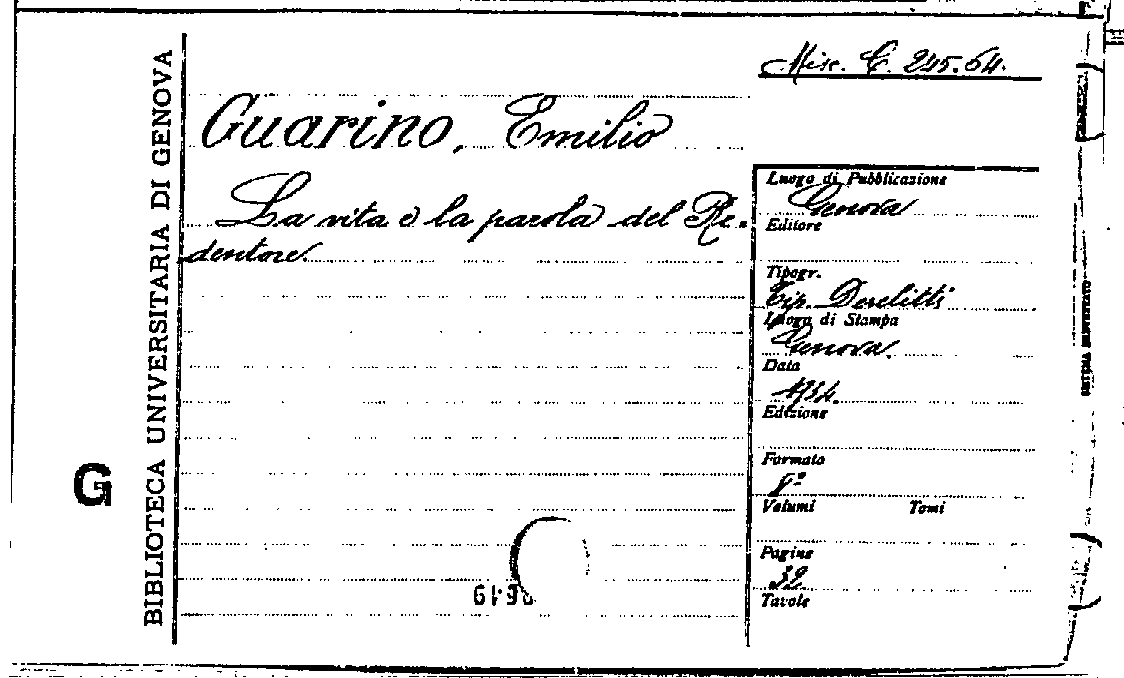 Misc. C. 245.64.
BIBLIOTECA UNIVERSITARIA DI GENOVA
G
Guarino, Emilio
La vita e la parola del Re-
dentore.
Luogo di Pubblicazione
Genova
Editore
Tipogr.
Tip. Derelitti
Luogo di Stampa
Genova.
Data
1934.
Edizione
Formato
8º
Volumi Tomi
Pagine
32
Tavole